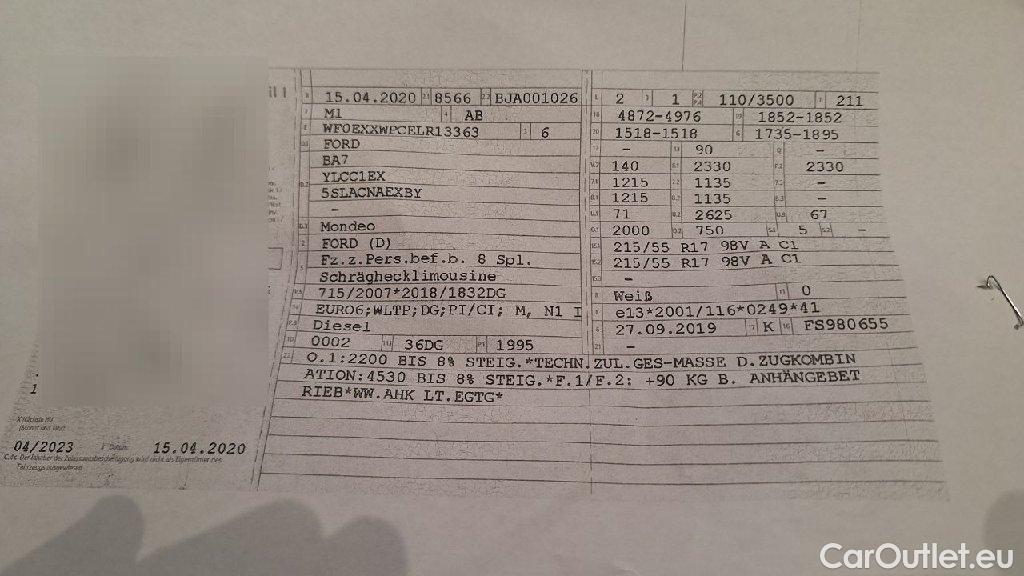 15.04.2020 8566 BJA001026
M1 AB
WF0EXXWPCELR13363 6
FORD
BA7
YLCC1EX
5SLACNAEXBY
–
Mondeo
FORD (D)
Fz.z.Pers.bef.b. 8 Spl.
Schräghecklimousine
715/2007*2018/1832DG
EURO6;WLTP;DG;PI/CI; M, N1 I
Diesel
0002 36DG 1995
2 1 110/3500 211
4872-4976 1852-1852
1518-1518 1735-1895
– 90 –
140 2330 2330
1215 1135 –
1215 1135 –
71 2625 67
2000 750 5 –
215/55 R17 98V A C1
215/55 R17 98V A C1
–
Weiß 0
e13*2001/116*0249*41
27.09.2019 K FS980655
–
O.1:2200 BIS 8% STEIG.*TECHN.ZUL.GES-MASSE D.ZUGKOMBIN
ATION:4530 BIS 8% STEIG.*F.1/F.2: +90 KG B. ANHÄNGEBET
RIEB*WW.AHK LT.EGTG*
04/2023 Datum: 15.04.2020
CarOutlet.eu